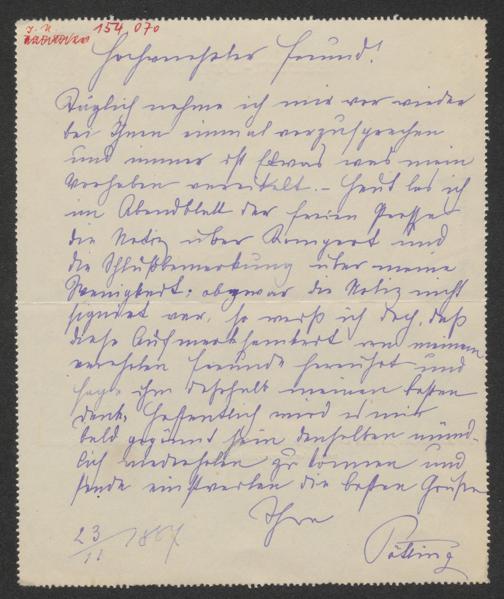 J. N. 154 070
Hochverehrter Freund!
Täglich nehme ich mir vor wieder
bei Ihnen einmal vorzusprechen
und immer ist Etwas was mein
Vorhaben vereitelt. – Heut las ich
im Abendblatt der freien Presse
die Notiz über Kompert und
die Schlußbemerkung über meine
Wenigkeit; obzwar die Notiz nicht
signirt war, so weiß ich doch, daß
diese Aufmerksamkeit von meinem
verehrten Freunde herrührt und
sage ihm deshalb meinen besten
Dank, hoffentlich wird es mir
bald gegönnt sein denselben münd-
lich wiederholen zu können und
sende einstweilen die besten Grüße
Ihre
Pötting
23/11 1887